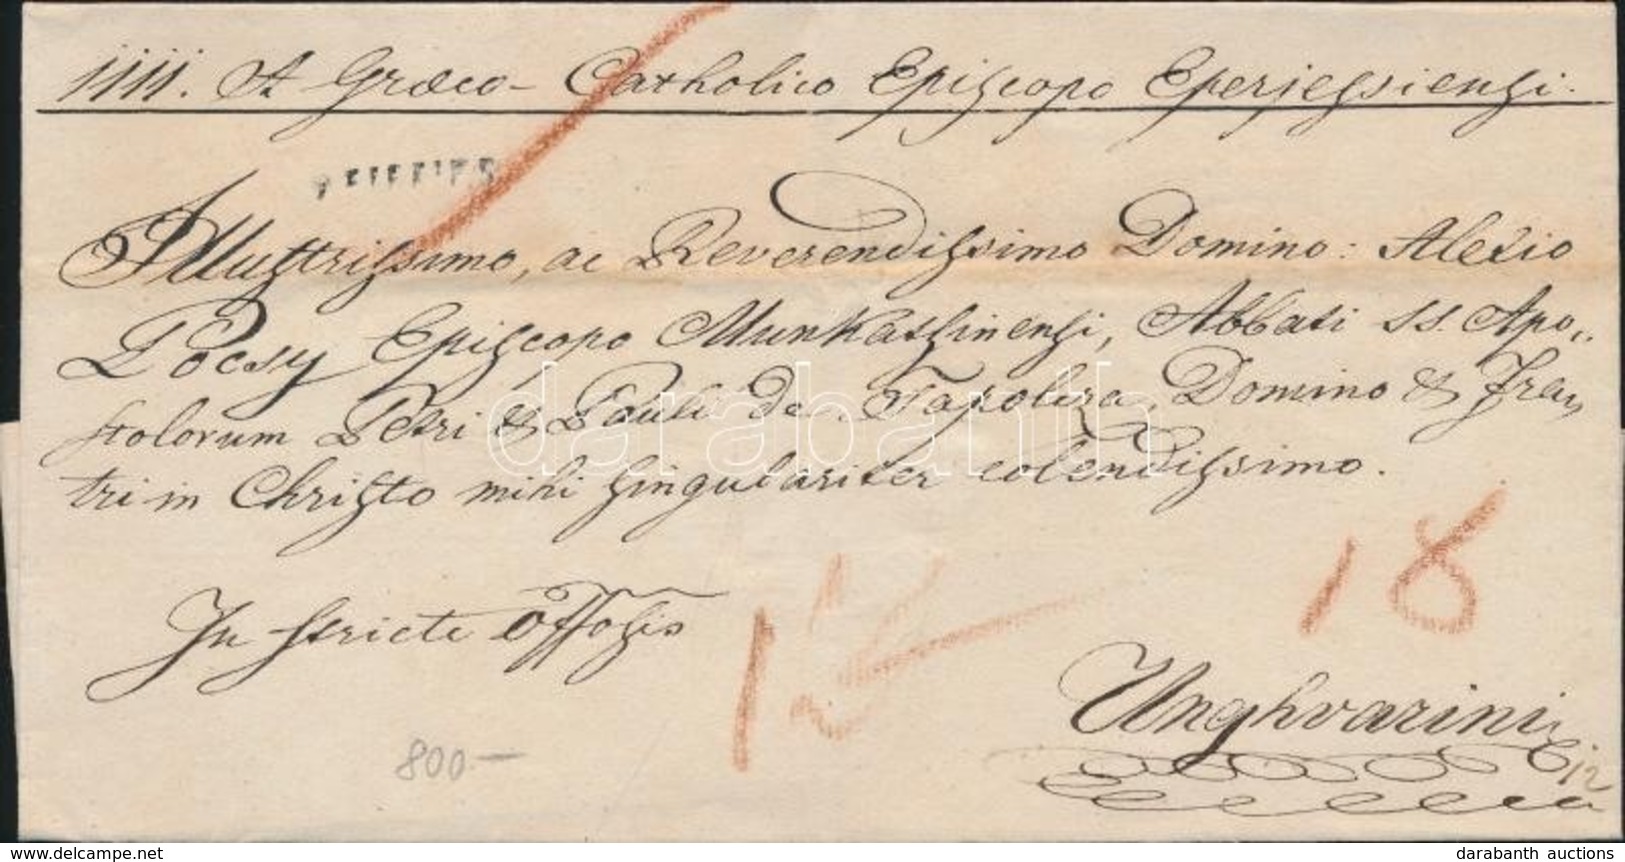 A Græco-Catholico Episcopo Eperjessiensi.
Illustrissimo, ac Reverendissimo Domino: Alexio
Pocsy Episcopo Munkatsinensi, Abbati SS. Apo„
stolorum Petri & Pauli de Tapolcza, Domino & Fra„
tri in Christo mihi singulariter colendissimo.
darabanth
In stricte Offosis
18
12
Unghvarini
12
800.—
www.darabanth.com
darabanth auctions